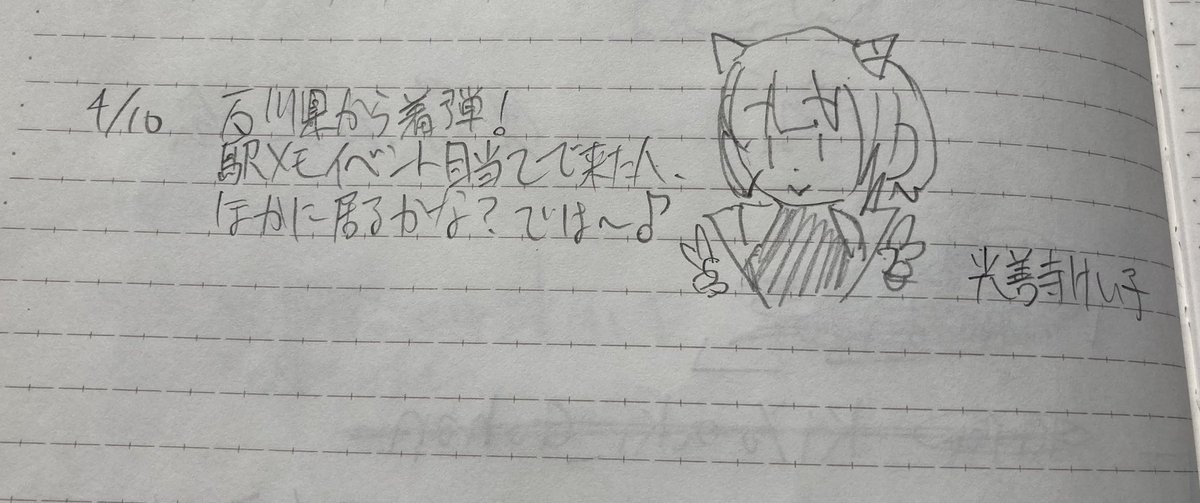 4/10 石川県から着弾!
駅メモイベント目当てで来た人、
ほかに居るかな?では〜♪
光善寺けい子